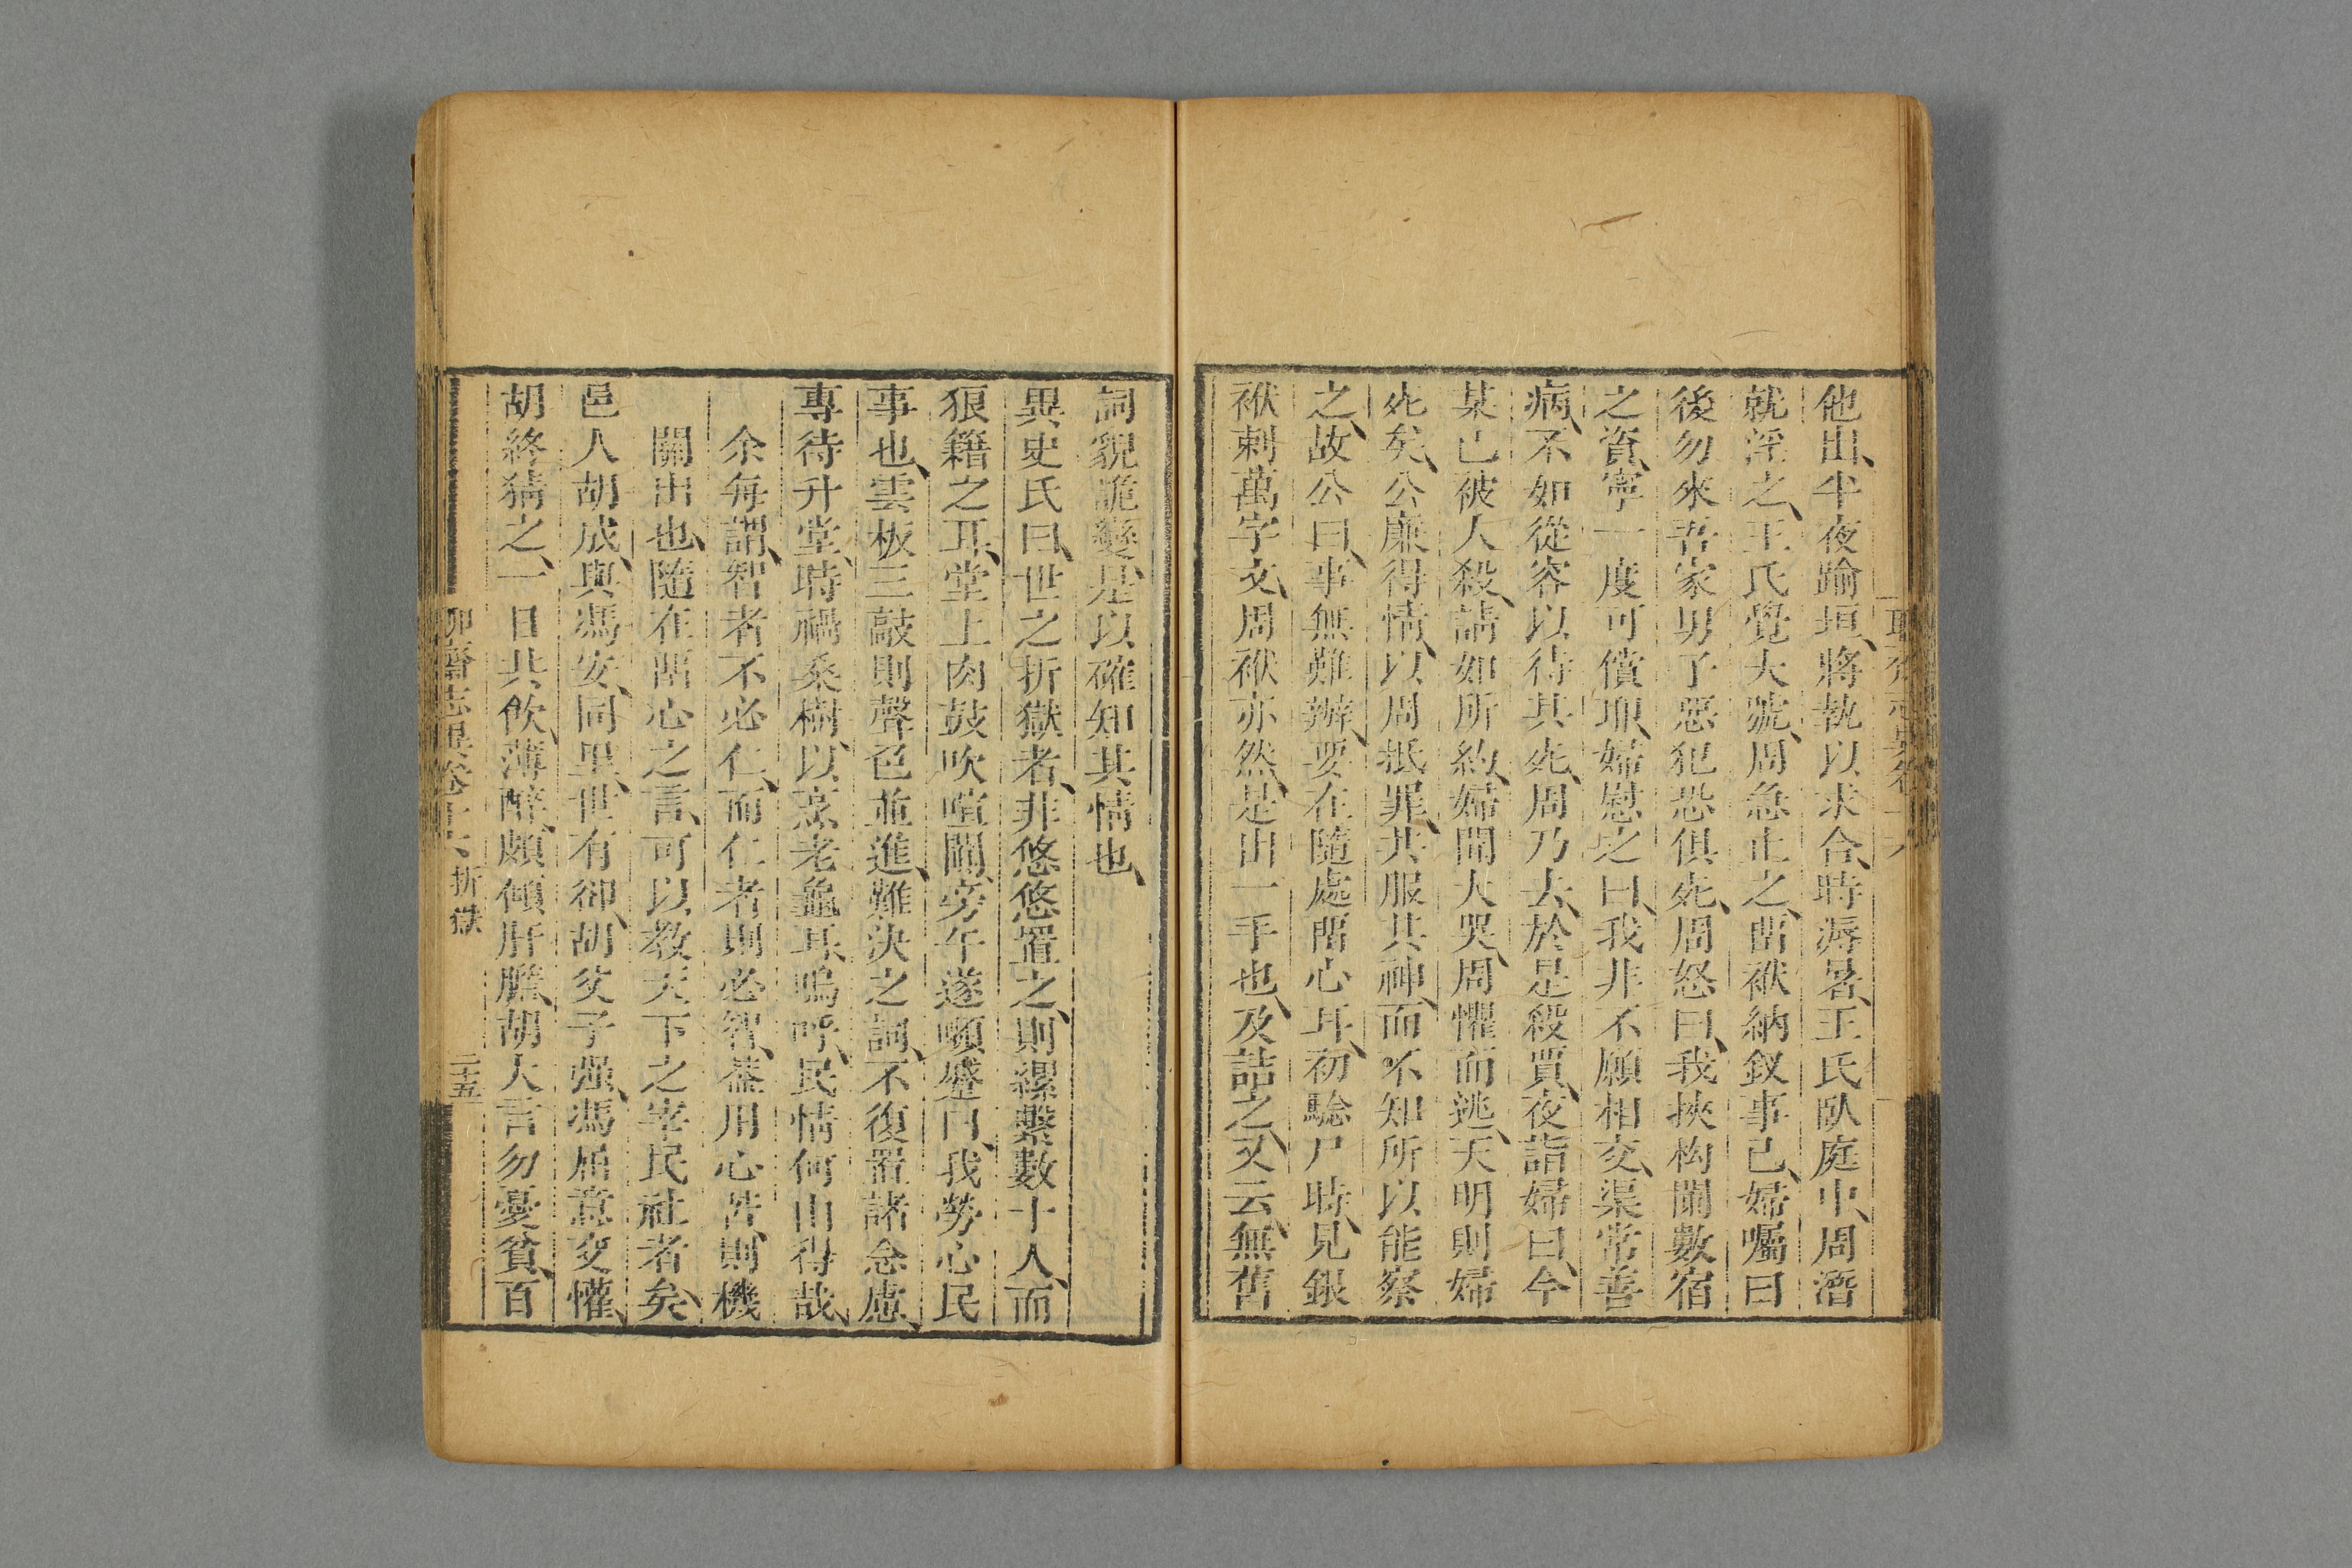 他出、半夜踰垣、將執以求合、時溽暑、王氏臥庭中、周潛
就淫之、王氏覺大號、周急止之、留袱納釵事已、婦囑曰
後勿來吾家男子惡犯恐俱死、周怒曰、我挾构闌數宿
之資、寧一度可償耶、婦慰之曰、我非不願相交、渠常善
病、不如從容以待其死、周乃去、於是殺賈、夜詣婦曰、今
某已被人殺、請如所約、婦聞大哭、周懼而逃、天明則婦
死矣、公廉得情、以周抵罪、共服其神、而不知所以能察
之、故公曰、事無難辦、要在隨處留心耳、初驗尸時、見銀
袱刺萬字文、周袱亦然、是出一手也、及詰之、又云、無舊
詞貌詭變、是以確知其情也、
異史氏曰、世之折獄者、非悠悠置之、則縲繫數十人、而
狼籍之耳、堂上肉鼓吹喧闐、旁午遂嚬蹙曰、我勞心民
事也、雲板三敲則聲色並進、難決之詞、不復置諸念慮、
專待升堂、時禍桑樹、以烹老龜耳、嗚呼、民情何由得哉、
余每謂、智者不必仁、而仁者則必智、蓋用心苦、則機
關出也、隨在留心之言、可以教天下之宰民社者矣、
邑人胡成、與馮安、同里、世有卻、胡父子强、馮屈意交懽、
胡終猜之、一日共飲、薄醉、頗傾肝膽、胡大言勿憂貧、百
折獄
二十五